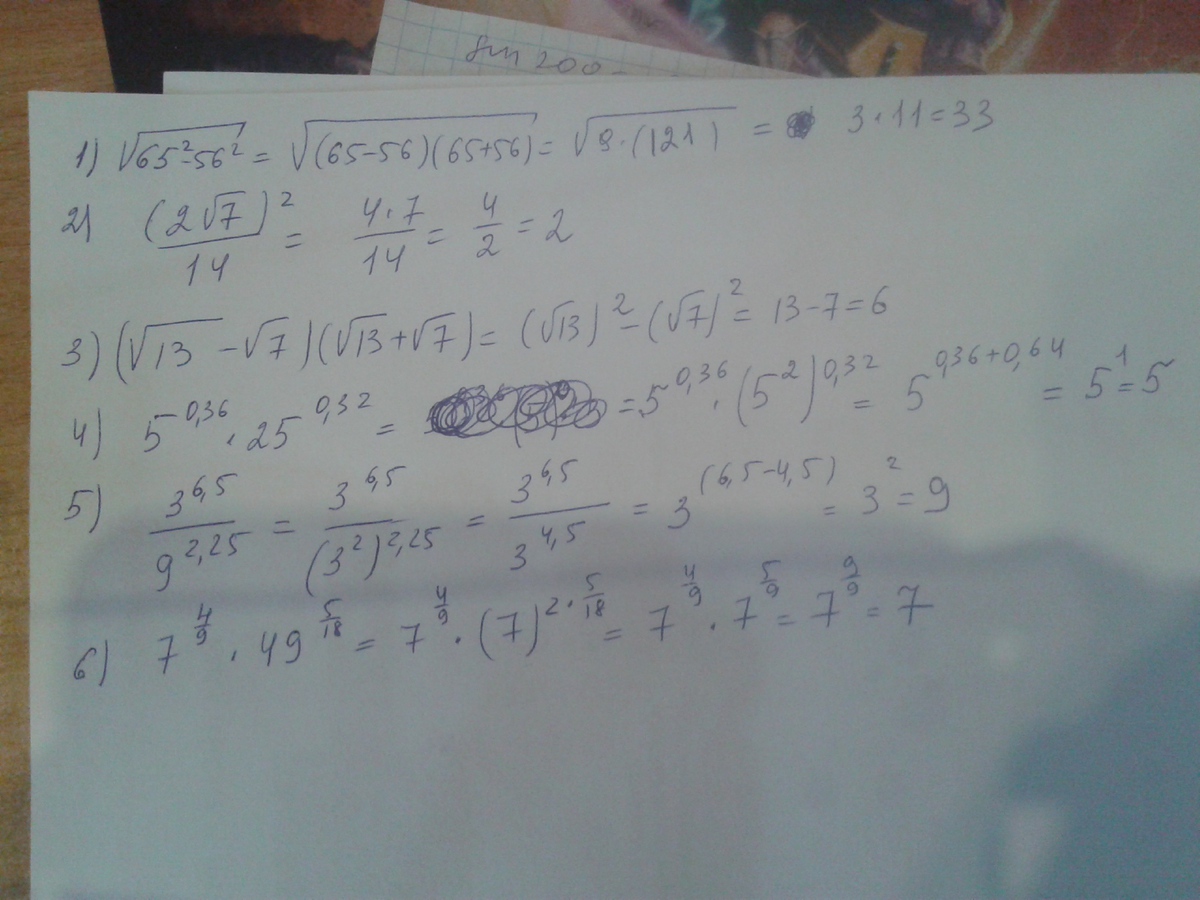 8m 200-
1) √(65²-56²) = √((65-56)(65+56)) = √(9·(121)) = 3·11=33
2) (2√7)²/14 = 4·7/14 = 4/2 = 2
3) (√13-√7)(√13+√7) = (√13)²-(√7)² = 13-7=6
4) 5^0,36 · 25^0,32 = = 5^0,36 · (5²)^0,32 = 5^0,36+0,64 = 5^1 = 5
5) 3^6,5/9^2,25 = 3^6,5/(3²)^2,25 = 3^6,5/3^4,5 = 3^(6,5-4,5) = 3² = 9
6) 7^4/9 · 49^5/18 = 7^4/9 · (7)^2·5/18 = 7^4/9 · 7^5/9 = 7^9/9 = 7